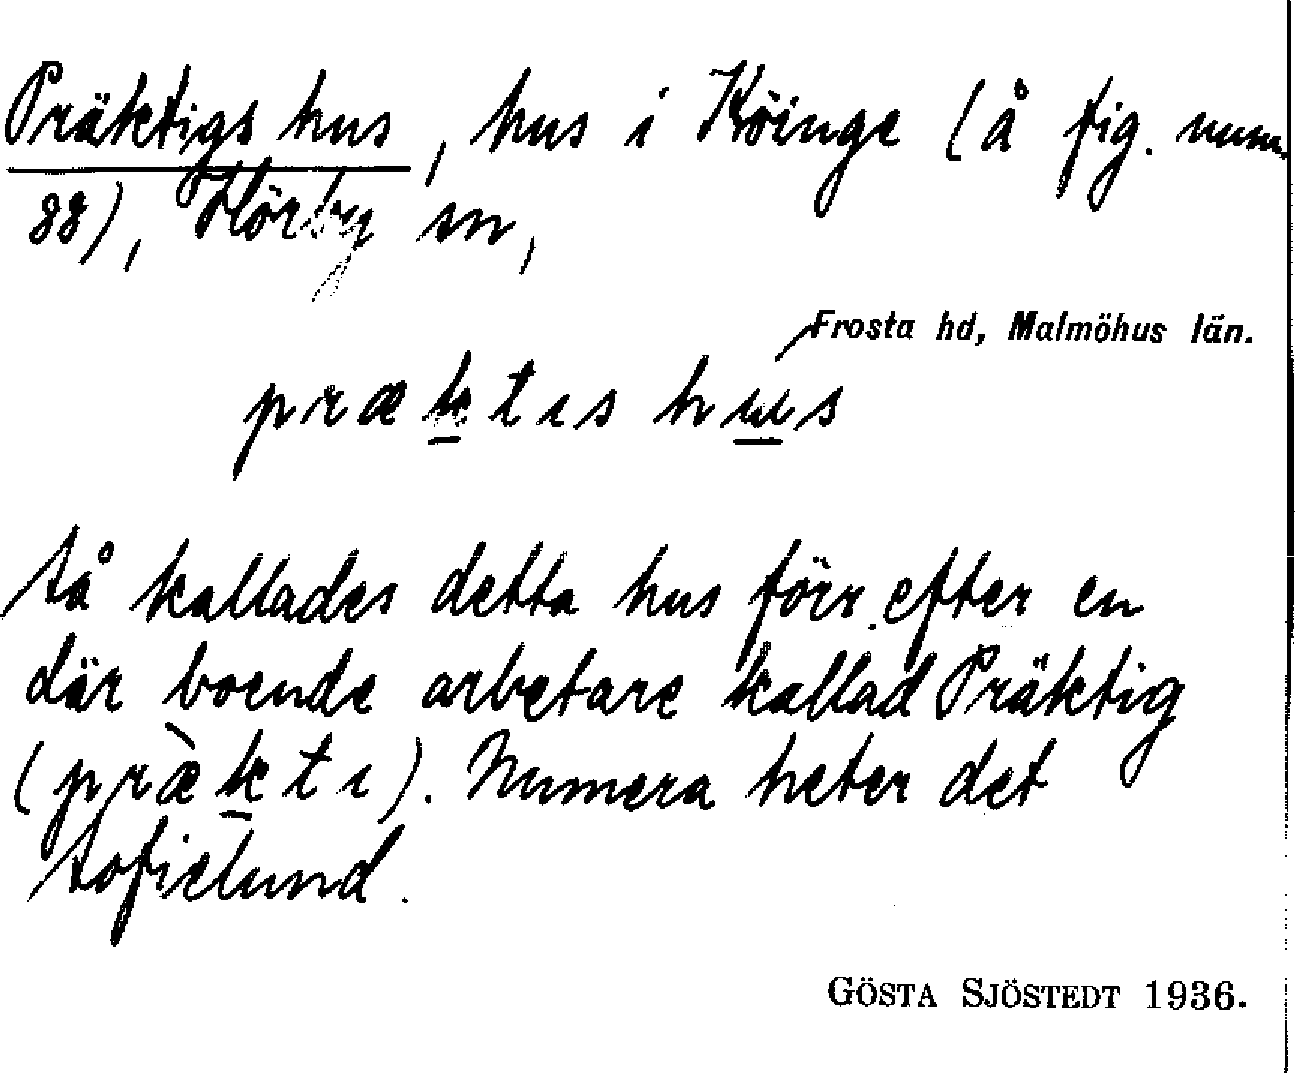 Präktigs hus, hus i Köinge (å fig. num.
88), Hörby sn,
Frosta hd, Malmöhus län.
præktis hus
Så kallades detta hus förr efter en
där boende arbetare kallad Präktig
(præ̀kti). Numera heter det
Sofielund.
GÖSTA SJÖSTEDT 1936.